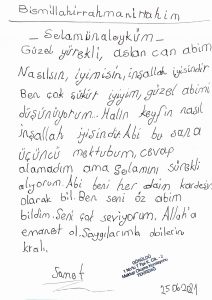 Bismillahirrahmanirrahim
Selamünaleyküm
Güzel yürekli, aslan can abim
Nasılsın, iyimisin, inşallah iyisindir
Ben çok şükür iyiyim, güzel abimi
düşünüyorum. Halin keyfin nasıl
inşallah iyisindir. Abi bu sana
üçüncü mektubum, cevap
alamadım ama selamını sürekli
alıyorum. Abi beni her daim kardeşin
olarak bil. Ben seni öz abim
bildim. Seni çok seviyorum. Allah'a
emanet ol. Saygılarımla abilerin
kralı
25.06.2021